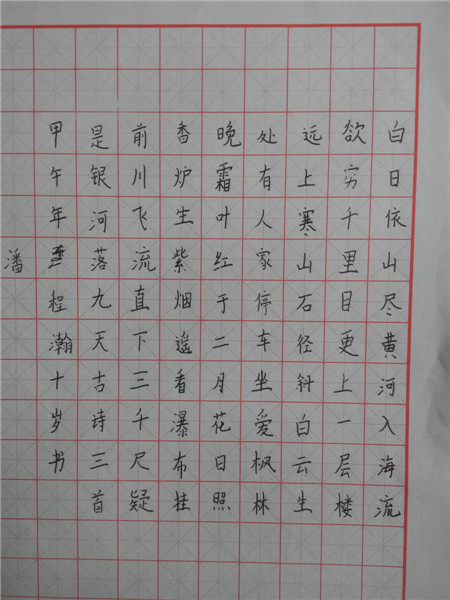 白日依山尽黄河入海流
欲穷千里目更上一层楼
远上寒山石径斜白云生
处有人家停车坐爱枫林
晚霜叶红于二月花日照
香炉生紫烟遥看瀑布挂
前川飞流直下三千尺疑
是银河落九天古诗三首
甲午年程瀚十岁书
潘